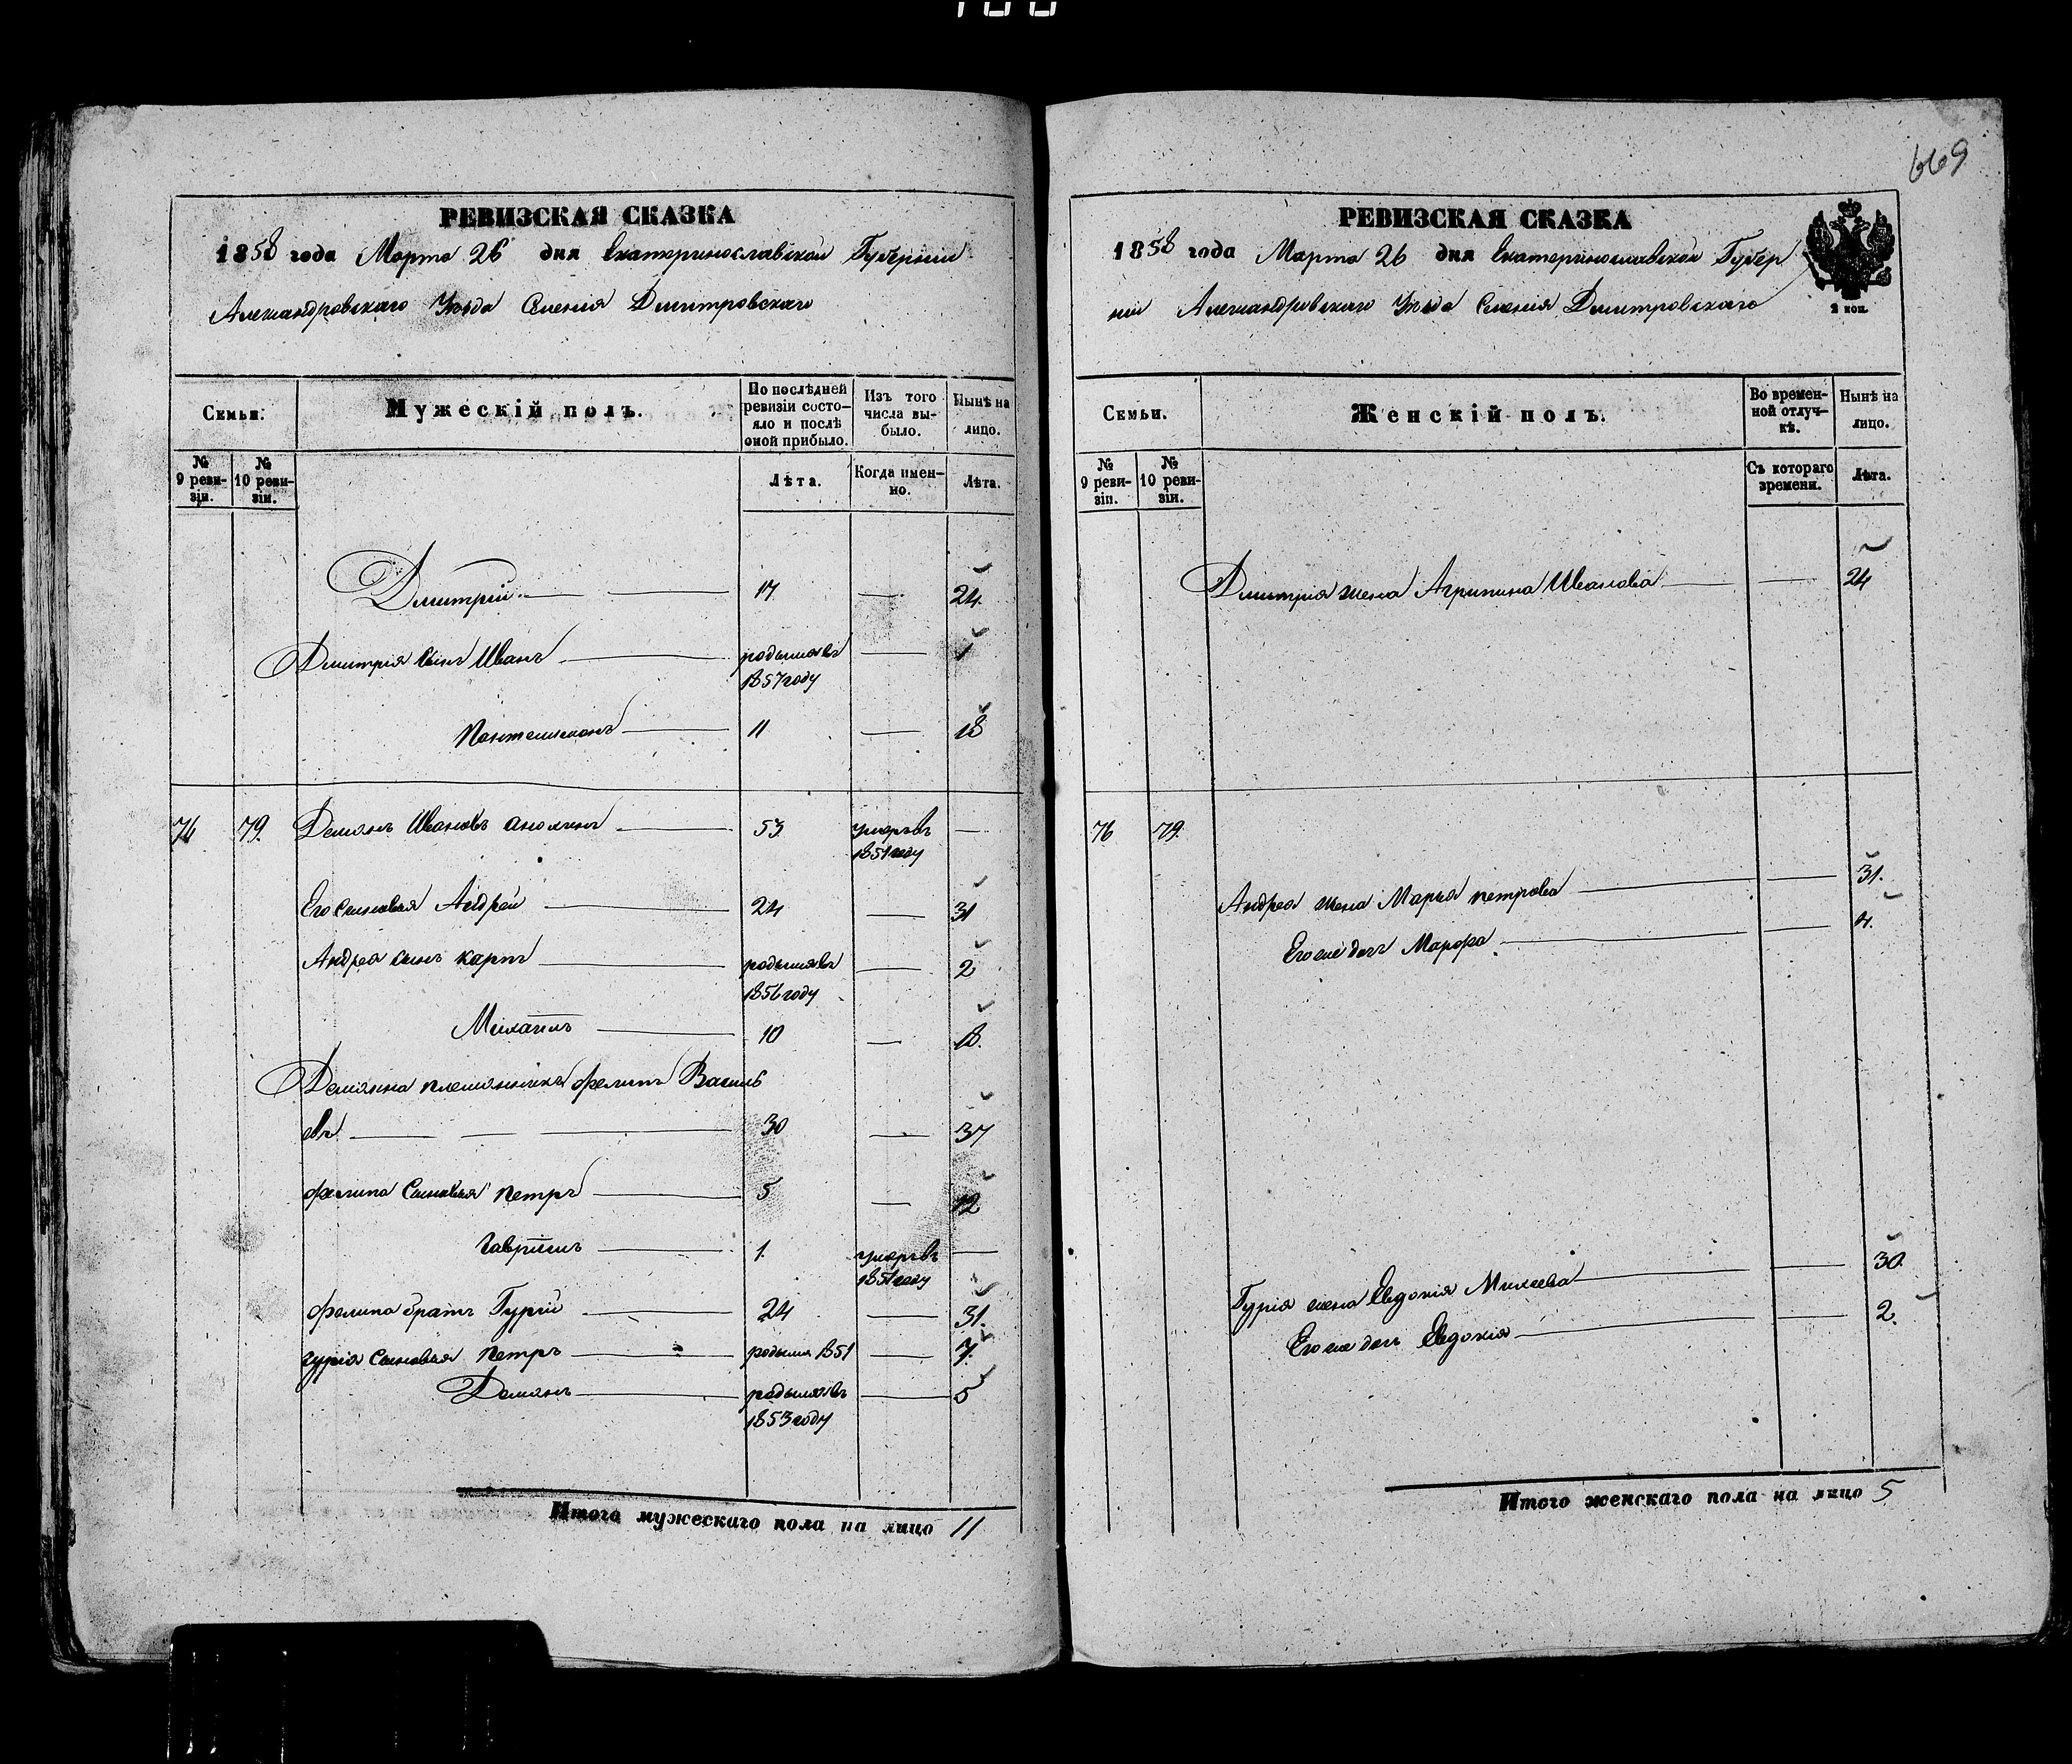 669
РЕВИЗСКАЯ СКАЗКА
1858 года Марта 26 дня Екатеринославской Губернии
Александровскаго Уѣзда Селенія Дмитровскаго
Семьи.
Мужескій полъ.
По послѣдней ревизіи состояло и послѣ оной прибыло.
Изъ того числа выбыло.
Нынѣ на лицо.
№ 9 ревизіи.
№ 10 ревизіи.
Лѣта.
Когда именно.
Лѣта.
Дмитрій 17 — 24
Дмитрія сынъ Иванъ родился въ 1857 году — 1
Пантелимонъ 11 — 18
76 79. Демянъ Ивановъ 53 умеръ въ 1851 году —
Его сыновья Андрей 24 — 31
Андрея сынъ Карпъ родился въ 1856 году — 2
Михаилъ 10 — 18.
Демяна племянникъ Филипъ Василь
евъ 30 — 37
Филипа сыновья Петръ 5 — 12
Гавріилъ 1. умеръ въ 1851 году —
Филипа братъ Гурій 24 — 31.
Гурія сыновья Петръ родился 1851 — 7.
Демянъ родился въ 1853 году — 5
Итого мужескаго пола на лицо 11
РЕВИЗСКАЯ СКАЗКА
1858 года Марта 26 дня Екатеринославской Губер
ніи Александровскаго Уѣзда Селенія Дмитровскаго
2 коп.
Семьи.
Женскій полъ.
Во временной отлучкѣ.
Нынѣ на лицо.
№ 9 ревизіи.
№ 10 ревизіи.
Съ котораго времени.
Лѣта.
Дмитрія жена Агрипина Иванова — 24
76 79.
Андрея жена Марья Петрова — 31.
Его же дочь Марфа — 4.
Гурія жена Евдокія Михеева — 30.
Его же дочь Евдокія — 2.
Итого женскаго пола на лицо 5